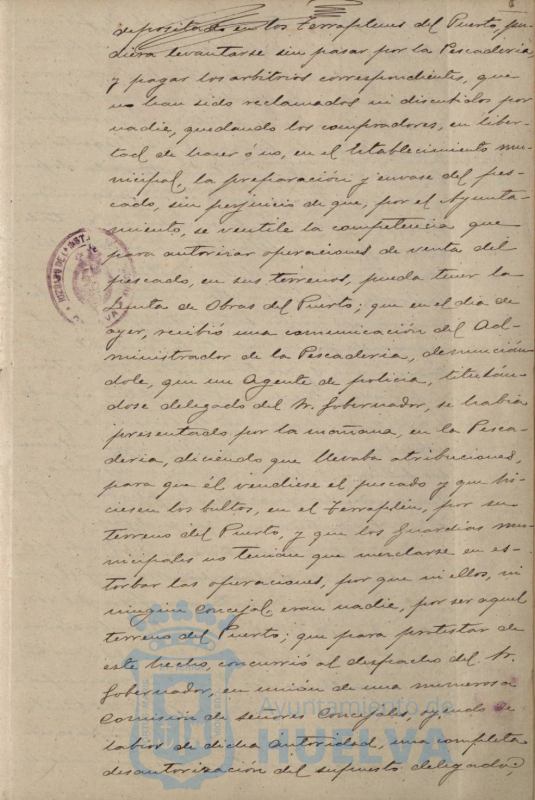 depositado en los Terraplenes del Puerto, pu-
diera levantarse sin pasar por la Pescaderia,
y pagar los arbitrios correspondientes, que
no han sido reclamados ni discutidos por
nadie, quedando los compradores, en liber-
tad de hacer ó no, en el Establecimiento mu-
nicipal, la preparación y envase del pes-
cado, sin perjuicio de que, por el Ayunta-
miento, se ventile la competencia que
para autorizar operaciones de venta del
pescado, en sus terrenos, pueda tener la
Junta de Obras del Puerto; que en el dia de
ayer, recibió una comunicación del Ad-
ministrador de la Pescaderia, denuncián-
dole, que un Agente de policia, titulán-
dose delegado del Sr. Gobernador, se habia
presentado por la mañana, en la Pesca-
deria, diciendo que llevaba atribuciones,
para que él vendiese el pescado y que hi-
ciesen los bultos, en el Terraplén, por ser
terreno del Puerto, y que los Guardias mu-
nicipales no tenian que mezclarse en es-
torbar las operaciones, por que ni ellos, ni
ningún Concejal, eran nadie, por ser aquel
terreno del Puerto; que para protestar de
este hecho, concurrió al despacho del Sr.
Gobernador, en unión de una numerosa
Comisión de señores Concejales, oyendo de
labios de dicha autoridad, una completa
desautorización del supuesto delegado,
Ayuntamiento de
HUELVA